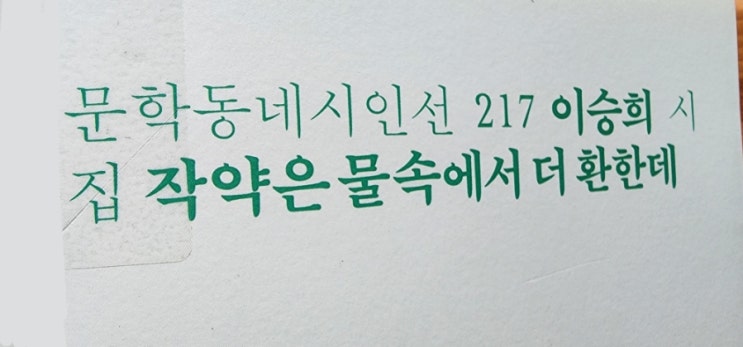 문학동네시인선 217 이승희 시
집 작약은 물속에서 더 환한데